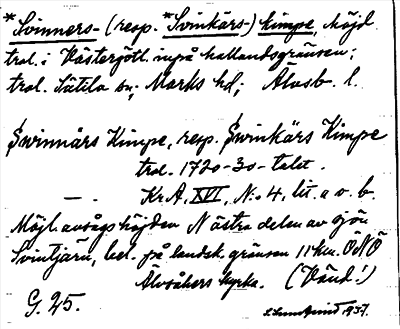 *Svinners- (resp. *Svinkärs-) kimpe, höjd
trol. i Västergötl. inpå hallandsgränsen;
trol. Sätila sn; Marks hd; Älvsb. l.
Swinnårs Kimpe, resp. Swinkärs Kimpe
trol. 1720-30-talet.
— . KrA, XVI, N:o 4, lit. a o. b.
Möjl. avságs höjden N östra delen av sjön
Svintjärn, bel. på landsk. gränsen 11 km. ÖNÖ
Älvsåkers kyrka. (Vänd!)
G. 25. 1937.